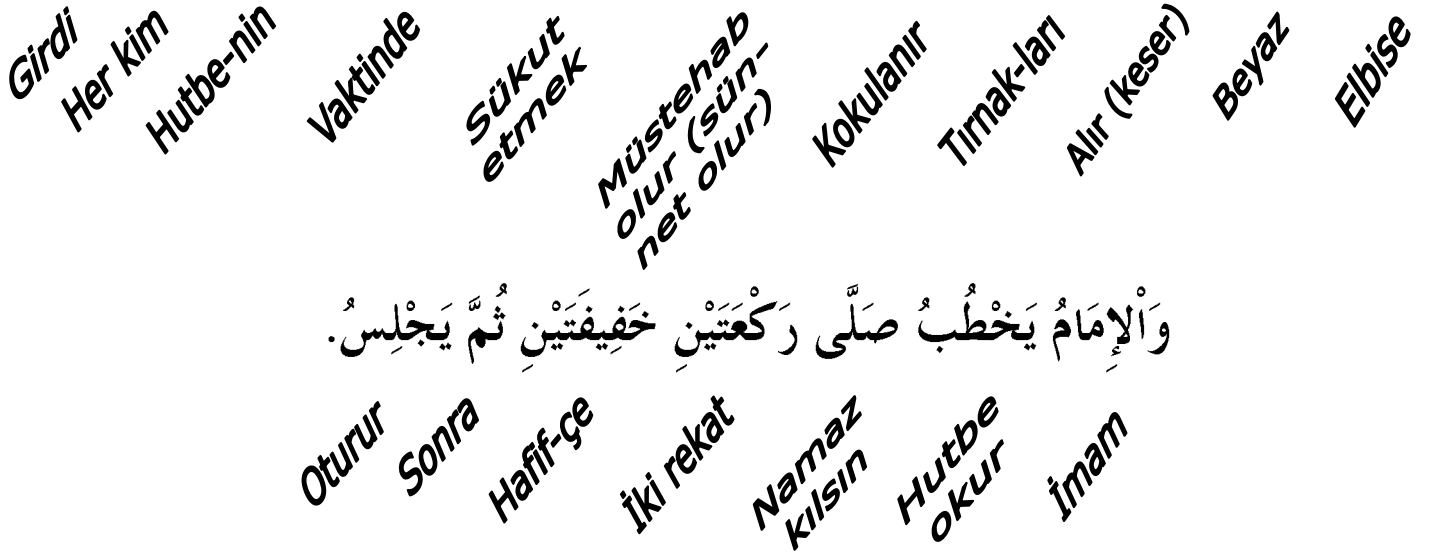 Girdi
Her kim
Hutbe-nin
Vaktinde
Sükut
etmek
Müstehab
olur (sün-
net olur)
Kokulanır
Tırnak-ları
Alır (keser)
Beyaz
Elbise
وَاْلإِمَامُ يَخْطُبُ صَلَّى رَكْعَتَيْنِ خَفِيفَتَيْنِ ثُمَّ يَجْلِسُ.
Oturur
Sonra
Hafif-çe
İki rekat
Namaz
kılsın
Hutbe
okur
İmam